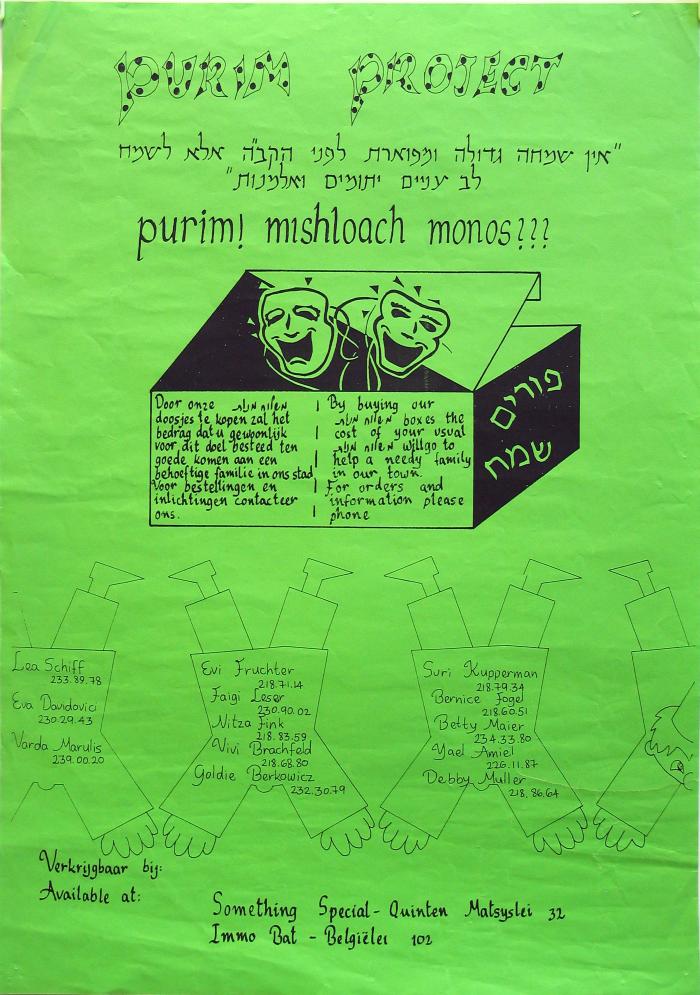 PURIM PROJECT
"אין שמחה גדולה ומפוארת לפני הקב"ה אלא לשמח
לב עניים יתומים ואלמנות"
purim! mishloach monos???
Door onze משלוח מנות
doosjes te kopen zal het
bedrag dat u gewoonlijk
voor dit doel besteed ten
goede komen aan een
behoeftige familie in ons stad
Voor bestellingen en
inlichtingen contacteer
ons.
By buying our
משלוח מנות boxes the
cost of your usual
משלוח מנות will go to
help a needy family
in our town.
For orders and
information please
phone
פורים
שמח
Lea Schiff
233.89.78
Eva Davidovici
230.29.43
Varda Marulis
239.00.20
Evi Fruchter
218.71.14
Faigi Leser
230.90.02
Nitza Fink
218.83.59
Vivi Brachfeld
218.68.80
Goldie Berkowicz
232.30.79
Suri Kupperman
218.79.34
Bernice Fogel
218.60.51
Betty Maier
234.33.80
Yael Amiel
226.11.87
Debby Muller
218.86.64
Verkrijgbaar bij:
Available at:
Something Special - Quinten Matsyslei 32
Immo Bat - Belgiëlei 102